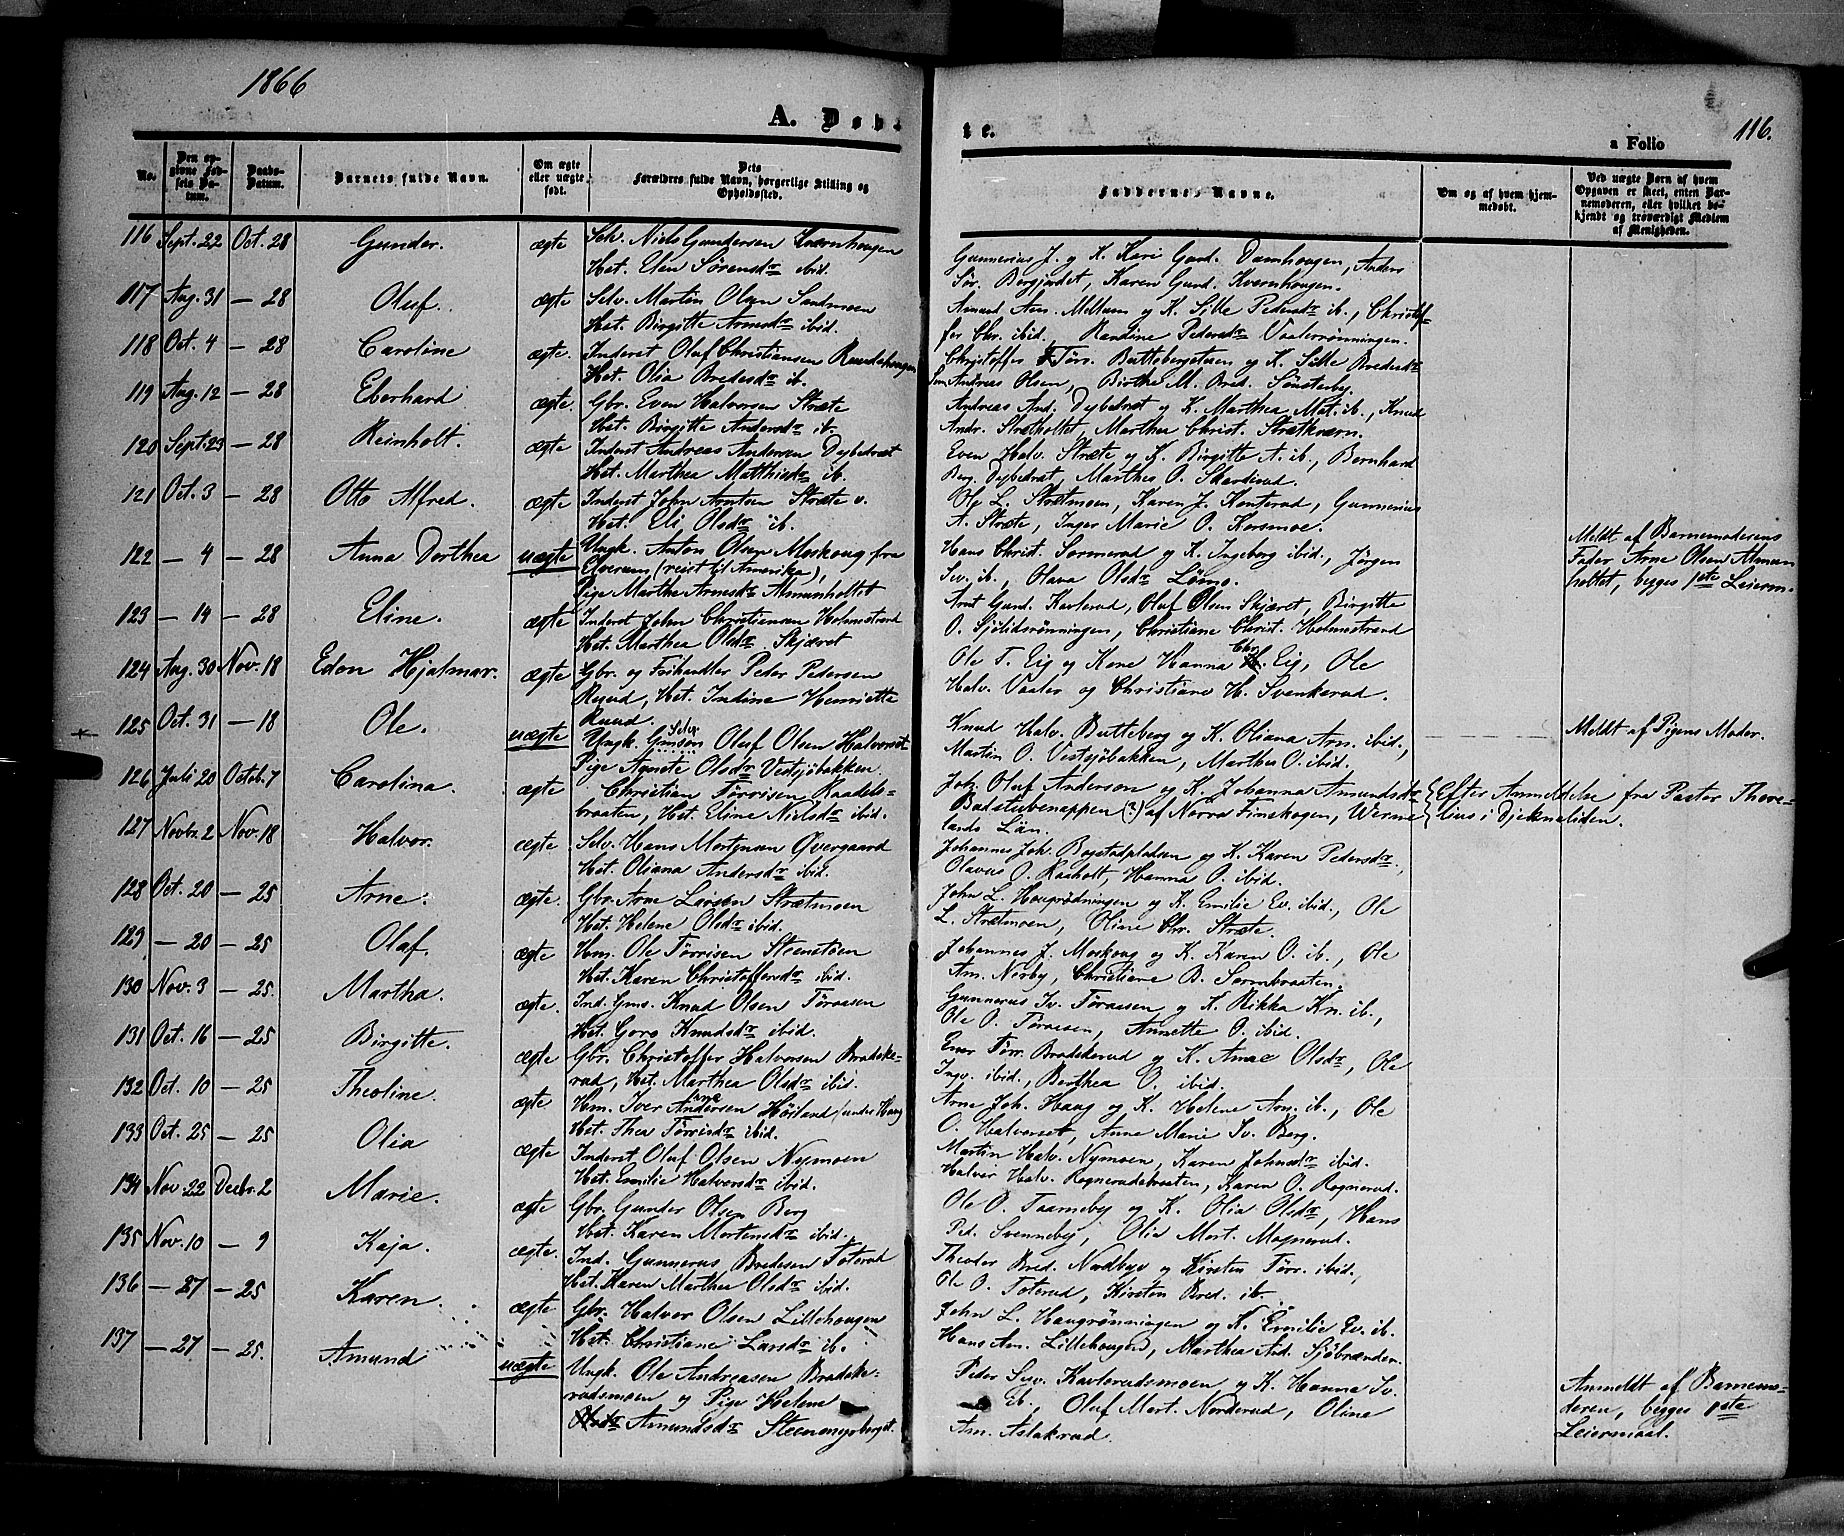 1866
A. Døbte.
116.
a Folio
No.
Den opgivne Fødsels Datum.
Daabs-Datum.
Barnets fulde Navn.
Om ægte eller uægte født.
Dets Forældres fulde Navn, borgerlige Stilling og Opholdssted.
Faddernes Navne.
Om og af hvem hjemmedøbt.
Ved uægte Børn af hvem Opgaven er skeet, enten Barnemoderen, eller hvilket bekjendt og troværdigt Medlem af Menigheden.
116 Sept. 22 Oct. 28 Gunder. ægte Selv. Niels Gundersen Kværnhougen
Hst. Elen Sørensdr ibid.
Gunnerius J. og K. Kari Gund. Damhougen, Anders
Sør. Bergjordet, Karen Gund. Kvernhougen.
117 Aug. 31 — 28 Oluf. ægte Selv. Martin Olsen Sandmoen
Hst. Birgitte Arnesdr ibid.
Amund Am. Mellum og K. Silke Pedersdr ib., Christof-
fer Chr. ibid. Randine Pedersdr Vaalerrønningen.
118 Oct. 4 — 28 Caroline ægte. Inderst Oluf Christiansen Rundehougen
Hst. Olia Bredesdr ib.
Christoffer Tørr. Buttebergstuen og K. Silke Bredesdr
Andreas Olsen, Birthe M. Bred. Sønsterby.
119 Aug. 12 — 28 Eberhard ægte. Gbr. Even Halvorsen Stræte
Hst. Birgitte Andersdr ib.
Andreas And. Dybedræt og K. Marthea Mat. ib., Knud
Andr. Strætholtet, Marthea Christ. Strætkværn.
120 Sept. 23 — 28 Reinholt. ægte Inderst Andreas Andersen Dybedræt
Hst. Marthea Matthisdr ib.
Even Halv. Stræte og K. Birgitte A. ib., Bernhard
Berg. Dybedræt, Marthea O. Skarderud.
121 Oct. 3 — 28 Otto Alfred. ægte Inderst John Arntsen Stræte v.
Hst. Eli Olsdr ib.
Ole L. Strætmoen, Karen J. Konterud, Gunnerius
A. Stræte, Inger Marie O. Korsmoe.
122 — 4 — 28 Anna Dorthea uægte Ungk. Anton Olsen Moskoug fra
Elverum (reist til Amerika),
Pige Marthe Arnesdr Almunholtet
Hans Christ. Sormerud og K. Ingeborg ibid., Jørgen
Sv. ib., Olava Olsdr Lömo.
Meldt af Barnemoderens
Fader Arne Olsen Almun
holtet, begges 1ste Leierm.
123 — 14 — 28 Eline. ægte Inderst John Christiansen Holmestrand
Hst. Marthea Olsdr Skjæret
Arnt Gund. Karlerud, Oluf Olsen Skjæret, Birgitte
O. Sjølidsrønningen, Christiane Christ. Holmstrand
124 Aug. 30 Nov. 18 Edon Hjalmar. ægte Gbr. og Forhandler Peder Pedersen
Ruud, Hst. Indine Henriette
Ruud.
Ole T. Eig og Kone Hanna Chr. Eig, Ole
Halv. Vaaler og Christiane H. Svenkerud.
125 Oct. 31 — 18 Ole. uægte Ungk. Selv. Oluf Olsen Halvorset
Pige Agnete Olsdr Vestsjøbakken.
Knud Halv. Butteberg og K. Oliana Arn. ibid.,
Martin O. Vestsjøbakken, Marthea O. ibid.
Meldt af Pigens Moder.
126 Juli 20 Octob. 7 Carolina. ægte Christian Tørrisen Raadels-
braaten, Hst. Eline Nielsdr ibid.
Joh. Oluf Anderson og K. Johanna Amundsdr
Badstubenappen (?) af Norra Finskogen, Werme-
lands Län.
Efter Anmeldelse fra Pastor Thore-
lius i Djekneliden.
127 Novbr. 2 Nov. 18 Halvor. ægte Selv. Hans Mortensen Øvergaard
Hst. Oliana Andersdr ibid.
Johannes Joh. Bogstadpladsen og K. Karen Pedersdr,
Olavus O. Raaholt, Hanna O. ibid.
128 Oct. 20 — 25 Arne. ægte. Gbr. Arne Larsen Strætmoen
Hst. Helene Olsdr ibid.
John L. Hougrødningen og K. Emilie Ev. ibid., Ole
L. Strætmoen, Oline Chr. Stræte.
129 — 20 — 25 Olaf. ægte Hm. Ole Tørrisen Steenstøen
Hst. Karen Christoffersdr ibid.
Johannes J. Moskoug og K. Karen O. ib., Ole
Am. Nerby, Christiane B. Sormbraaten.
130 Nov. 3 — 25. Martha. ægte. Ind. Gms. Knud Olsen Tøraasen
Hst. Goro Knudsdr ibid.
Gunnerus Iv. Tøraasen og K. Rikka Kn. ib.,
Ole O. Tøraasen, Annette O. ibid.
131 Oct. 16 — 25 Birgitte. ægte Gbr. Christoffer Halvorsen Bradeke-
rud, Hst. Marthea Olsdr ibid.
Ener Tørr. Bradekerud og K. Anne Olsdr, Ole
Ingv. ibid., Berthea O. ibid.
132 Oct. 10 — 25 Theoline. ægte Hm. Iver Andersen Høiland (under Haug
Hst. Thea Tørrisdr ibid.
Arne Joh. Haug og K. Helene Arn. ib., Ole
O. Halvorset, Anne Marie Iv. Berg.
133 Oct. 25 — 25 Olia ægte Inderst Oluf Olsen Nymoen
Hst. Emilie Halvorsdr ibid.
Martin Halv. Nymoen, Karen Johnsdr ibid.
Halvor Halv. Rognerudsbraaten, Karen O. Rognerud.
134 Nov. 22 Decbr. 2 Marie. ægte Gbr. Gunder Olsen Berg
Hst. Karen Mortensdr ibid.
Ole O. Taarneby og K. Olia Olsdr, Hans
Ped. Svenneby, Olia Mort. Mognerud.
135 Nov. 10 — 9 Kaja. ægte. Ind. Gunnerus Bredesen Toterud
Hst. Karen Marthea Olsdr ibid.
Theodor Bred. Nordbye og Kirsten Tørr. ibid.,
Ole O. Toterud, Kirsten Bred. ib.
136 — 27 — 25 Karen. ægte Gbr. Halvor Olsen Lillehougen
Hst. Christiane Larsdr ib.
John L. Hougrønningen og K. Emilie Ev. ib.
Hans Am. Lillehougen, Marthea And. Sjøbrænden.
137 — 27 — 25. Amund uægte Ungk. Ole Andreasen Bradeke-
rudsmoen og Pige Helene
Amundsdr Steenmyrberget.
Peder Sv. Karlerudsmoen og K. Hanna Iv.
ib., Oluf Mart. Norderud, Oline
Am. Aslakrud.
Anmeldt af Barnemo-
deren, begges 1ste
Leiermaal.